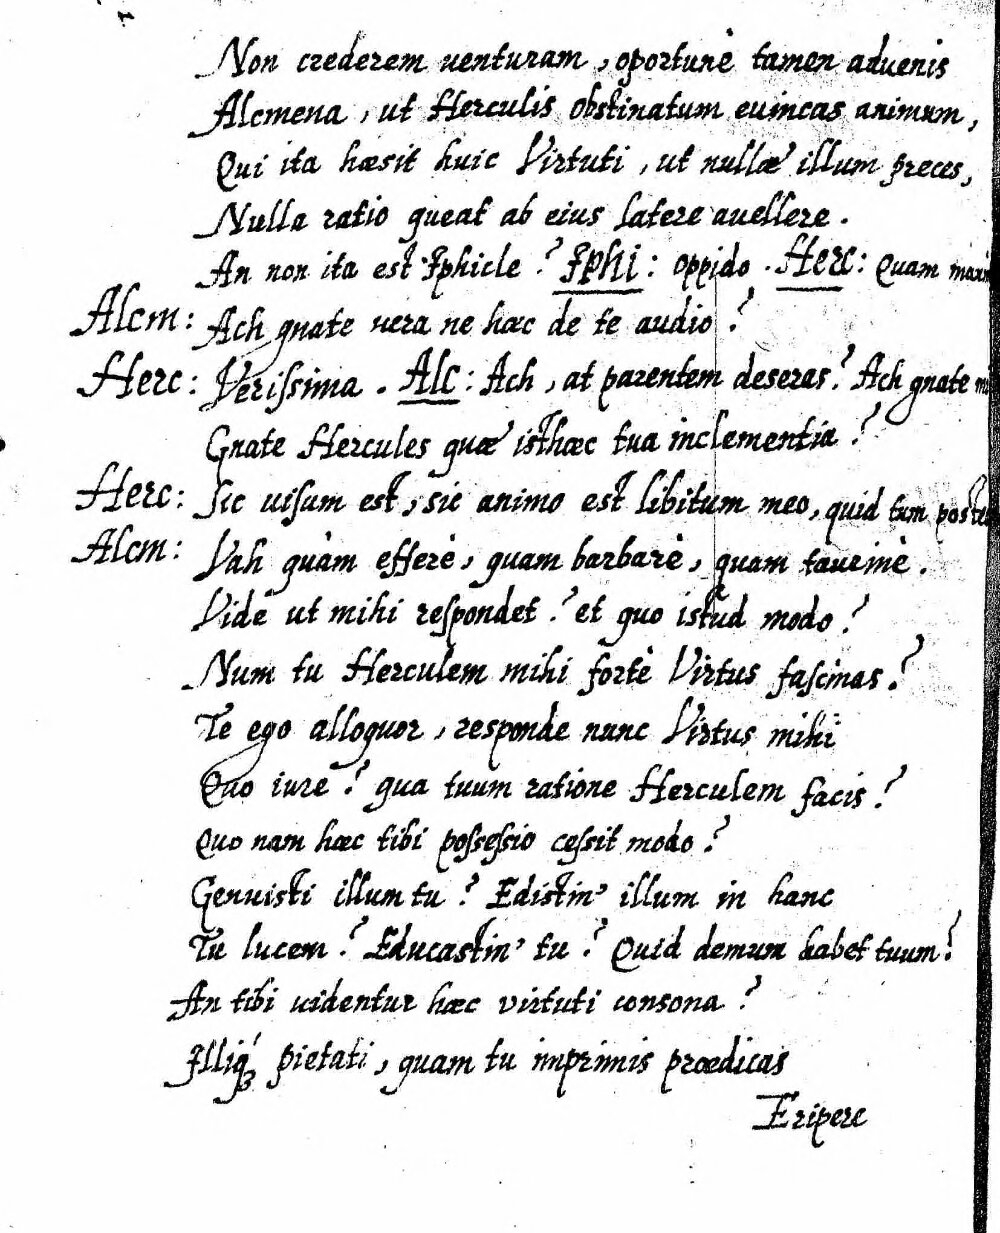 Non crederem uenturam, oportunè tamen aduenis
Alcmena, ut Herculis obstinatum euincas animum,
Qui ita hæsit huic Virtuti, ut nullæ illum preces,
Nulla ratio queat ab eius latere auellere.
An non ita est Iphicle? Iphi: oppido. Herc: Quam
Alcm: Ach gnate uera ne hæc de te audio?
Herc: Verissima. Alc: Ach, at parentem deseras? Ach gnate
Gnate Hercules quæ isthæc tua inclementia?
Herc: Sic uisum est, sic animo est libitum meo, quid tum
Alcm: Vah quàm efferè, quam barbarè, quam taurinè.
Vide ut mihi respondet? et quo istud modo?
Num tu Herculem mihi fortè Virtus fascinas?
Te ego alloquor, responde nunc Virtus mihi
Quo iure? qua tuum ratione Herculem facis?
Quo nam hæc tibi possessio cessit modo?
Genuisti illum tu? Edistin' illum in hanc
Tu lucem? Educastin' tu? Quid demum habet tuum?
An tibi uidentur hæc virtuti consona?
Illiq́ꝫ pietati, quam tu imprimis prædicas
Eripere